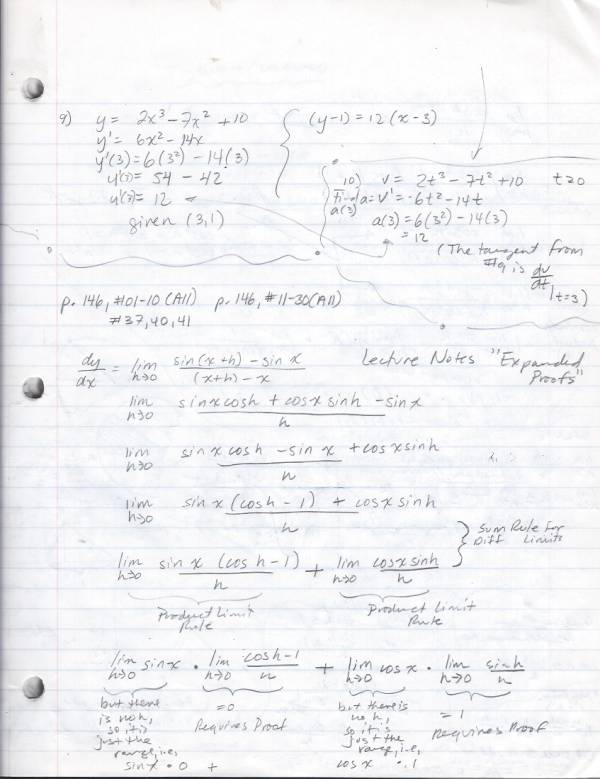 9) y = 2x³ - 7x² + 10
y' = 6x² - 14x
y'(3) = 6(3²) - 14(3)
y'(3) = 54 - 42
y'(3) = 12
given (3,1)
(y-1) = 12(x-3)
10) v = 2t³ - 7t² + 10 t≥0
Find a(3) a = v' = 6t² - 14t
a(3) = 6(3²) - 14(3)
= 12
(The tangent from
#9 is dv/dt |t=3)
p. 146, #01-10 (All) p. 146, #11-30 (All)
#37, 40, 41
Lecture Notes "Expanded
Proofs"
dy/dx = lim h→0 (sin(x+h) - sin x)/((x+h) - x)
lim h→0 (sinxcosh + cosxsinh - sinx)/h
lim h→0 (sin x cosh - sin x + cosxsinh)/h
lim h→0 (sin x (cosh - 1) + cosxsinh)/h
lim h→0 (sin x (cos h - 1))/h + lim h→0 (cosxsinh)/h } Sum Rule For
Diff Limits
Product Limit
Rule
Product Limit
Rule
lim h→0 sinx · lim h→0 (cosh-1)/h + lim h→0 cosx · lim h→0 (sinh)/h
but there
is no h,
so it is
just the
range, i.e,
sinx · 0 +
=0
Requires Proof
but there is
no h,
so it is
just the
range, i.e,
cosx · 1
= 1
Requires Proof